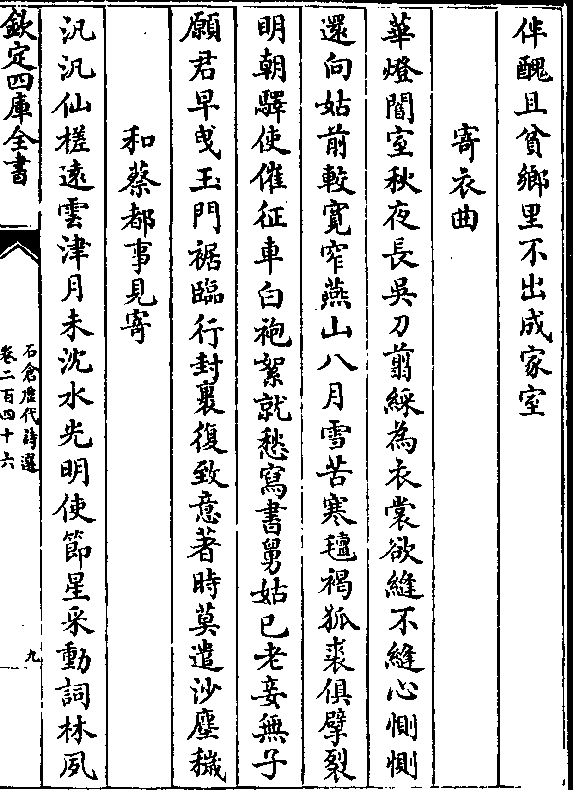 伴醜且貧鄉里不出成家室
寄衣曲
華燈闇室秋夜長吳刀翦綵為衣裳欲縫不縫心惻惻
還向姑前較寛窄燕山八月雪苦寒氊褐狐裘俱擘裂
明朝驛使催征車白袍絮就愁寫書舅姑已老妾無子
願君早曳玉門裾臨行封裹復致意著時莫遣沙塵穢
和蔡都事見寄
汎汎仙槎遠雲津月未沈水光明使節星采動詞林夙
欽定四庫全書
石倉歷代詩選
卷二百四十六
九